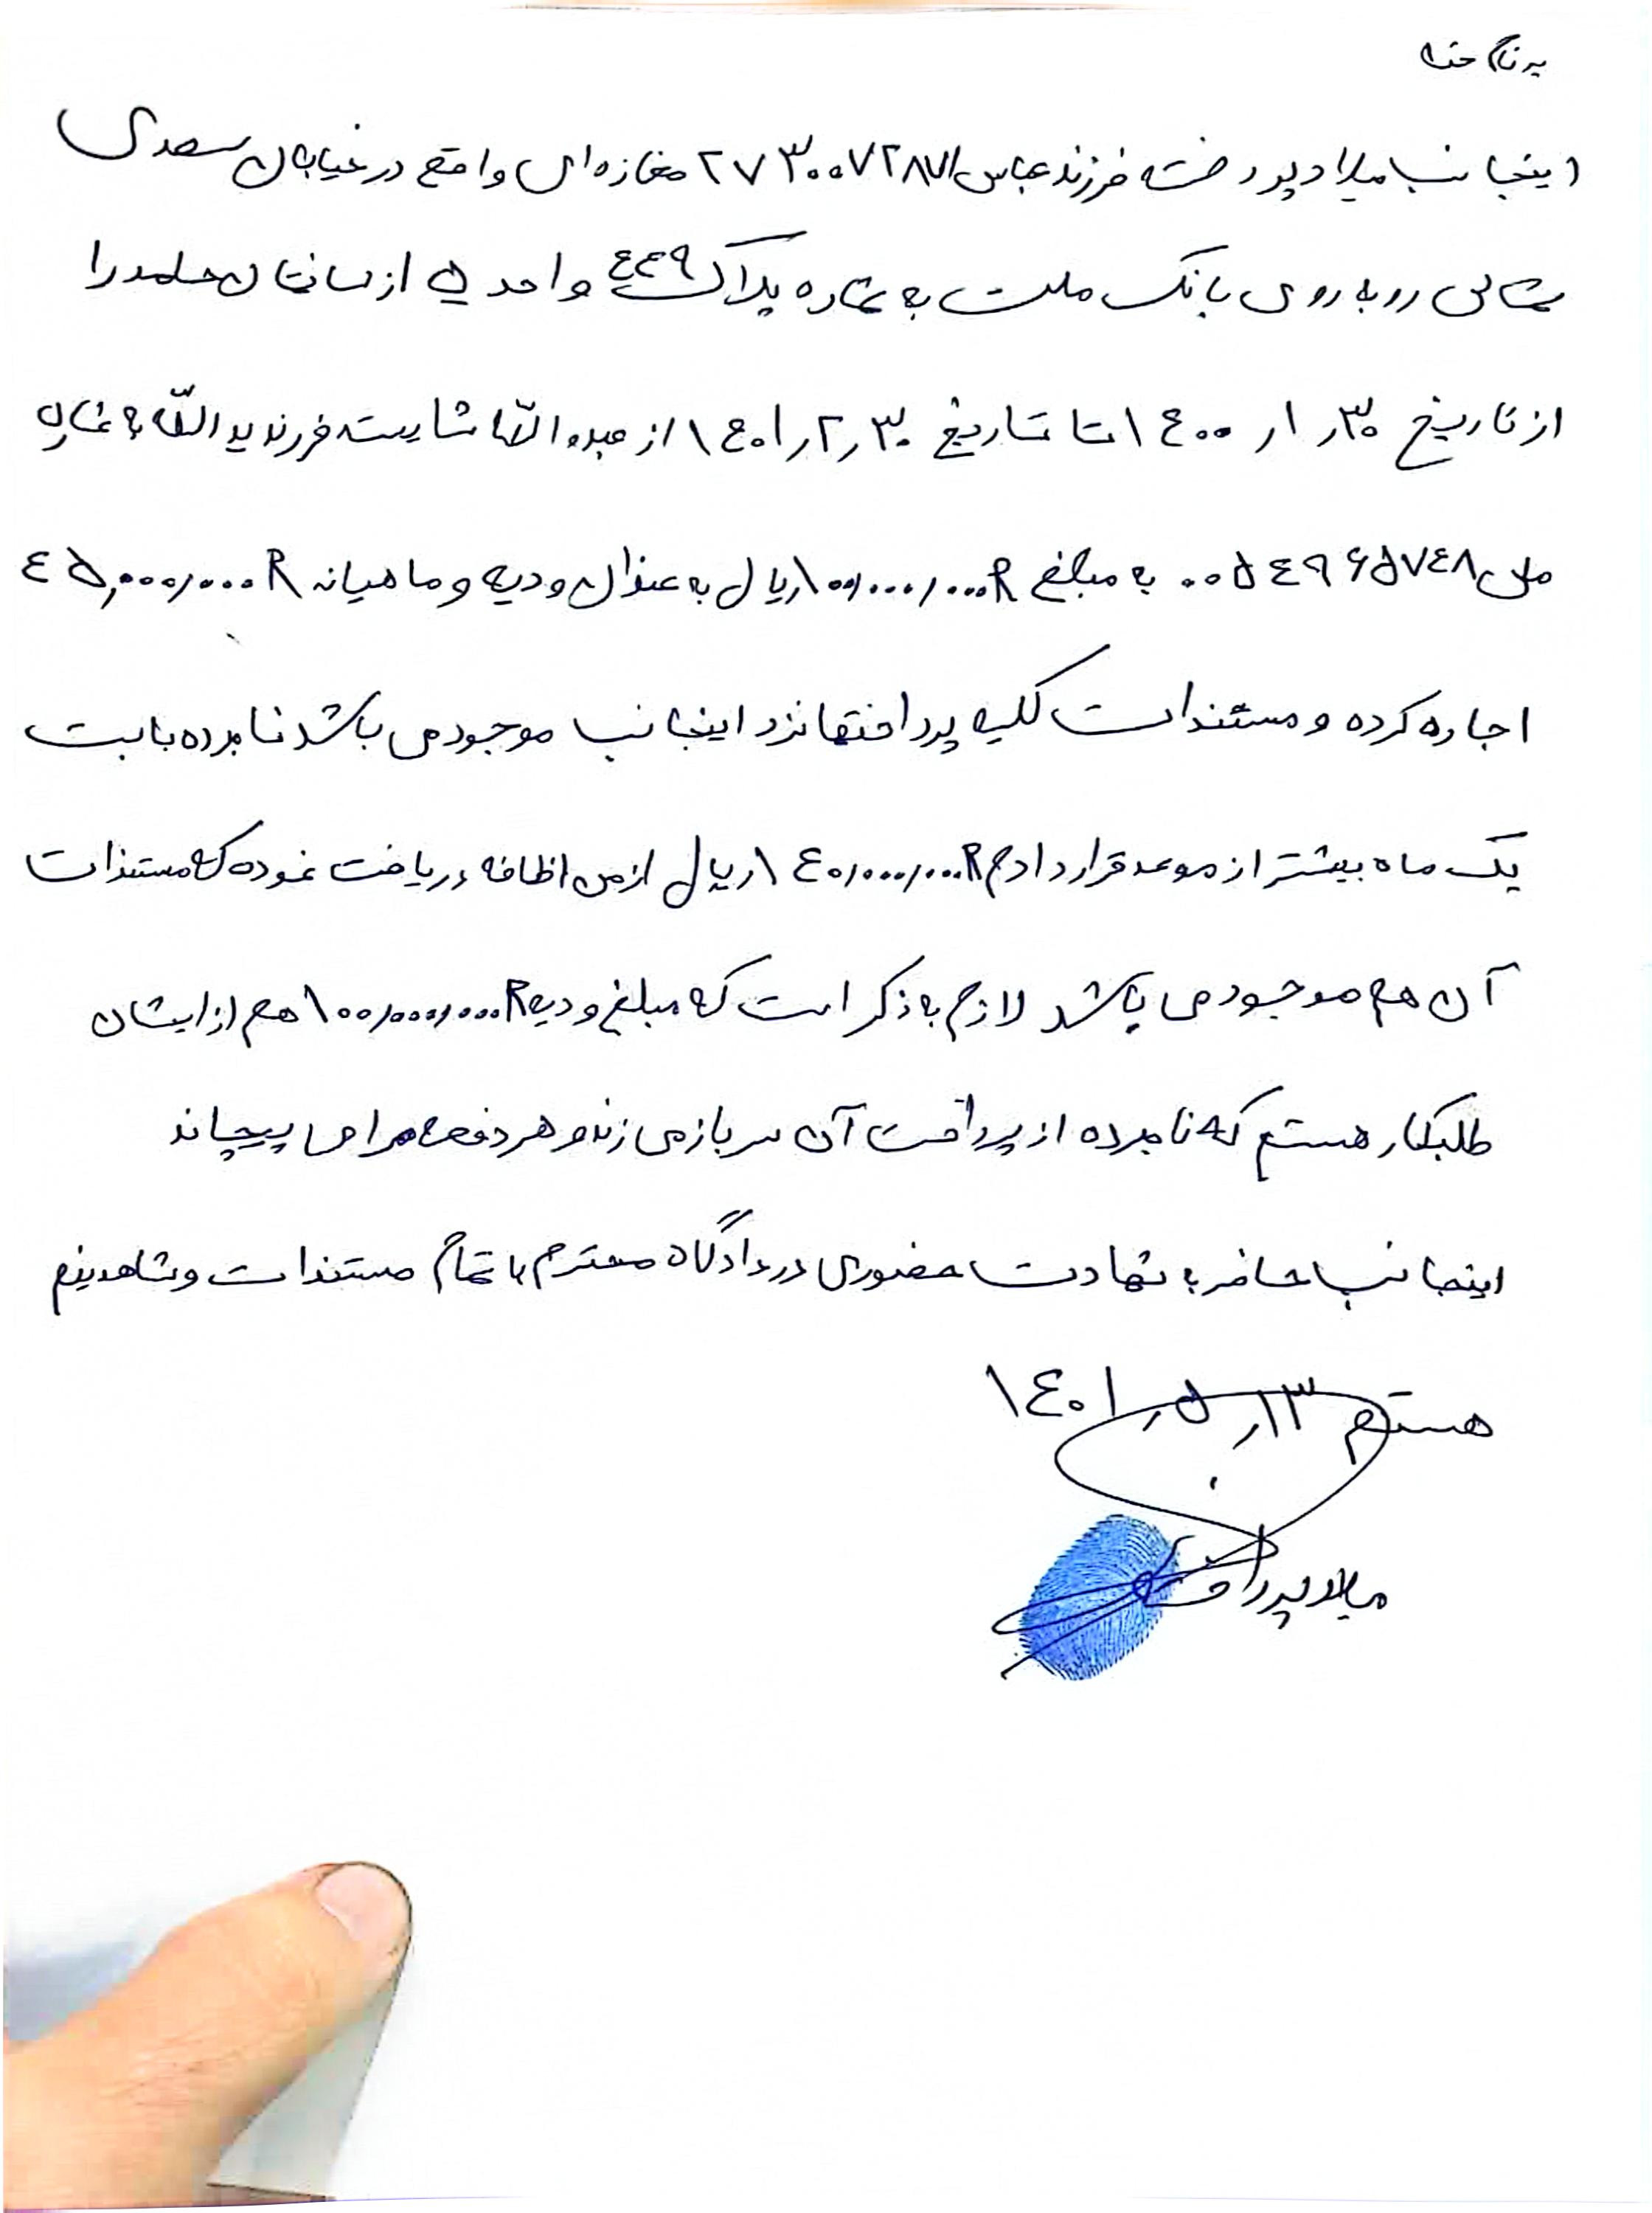 به نام خدا
اینجانب میلاد پرداخت فرزند عباس ۲۷۳۰۰۷۲۸۷۱ مغازه ای واقع در خیابان سعدی
شمالی روبه روی بانک ملت به شماره پلاک ۴۴۹ واحد ۵ از ساختمان را
از تاریخ ۱۴۰۰/۱/۳۰ تا تاریخ ۱۴۰۱/۲/۳۰ از عبداله شایسته فرزند یداللّه به شماره
ملی ۰۰۵۴۹۶۵۷۴۸ به مبلغ ۱۰۰/۰۰۰/۰۰۰R ریال به عنوان ودیه و ماهیانه ۴۵,۰۰۰/۰۰۰R
اجاره کرده و مستندات کلیه پرداختها نزد اینجانب موجود می باشد نامبرده بابت
یک ماه بیشتر از موعد قرار دادم ۱۴۰/۰۰۰/۰۰۰R ریال از من اظافه دریافت نموده که مستندات
آن هم موجود می باشد لازم به ذکر است که مبلغ ودیه ۱۰۰/۰۰۰/۰۰۰R هم از ایشان
طلبکار هستم که نامبرده از پرداخت آن سر باز می زند و هر دفعه مرا می پیچاند
اینجانب حاضر به شهادت حضوری در دادگاه محترم با تمام مستندات و شاهدینم
هستم ۱۴۰۱/۵/۱۳
میلاد پرداخت